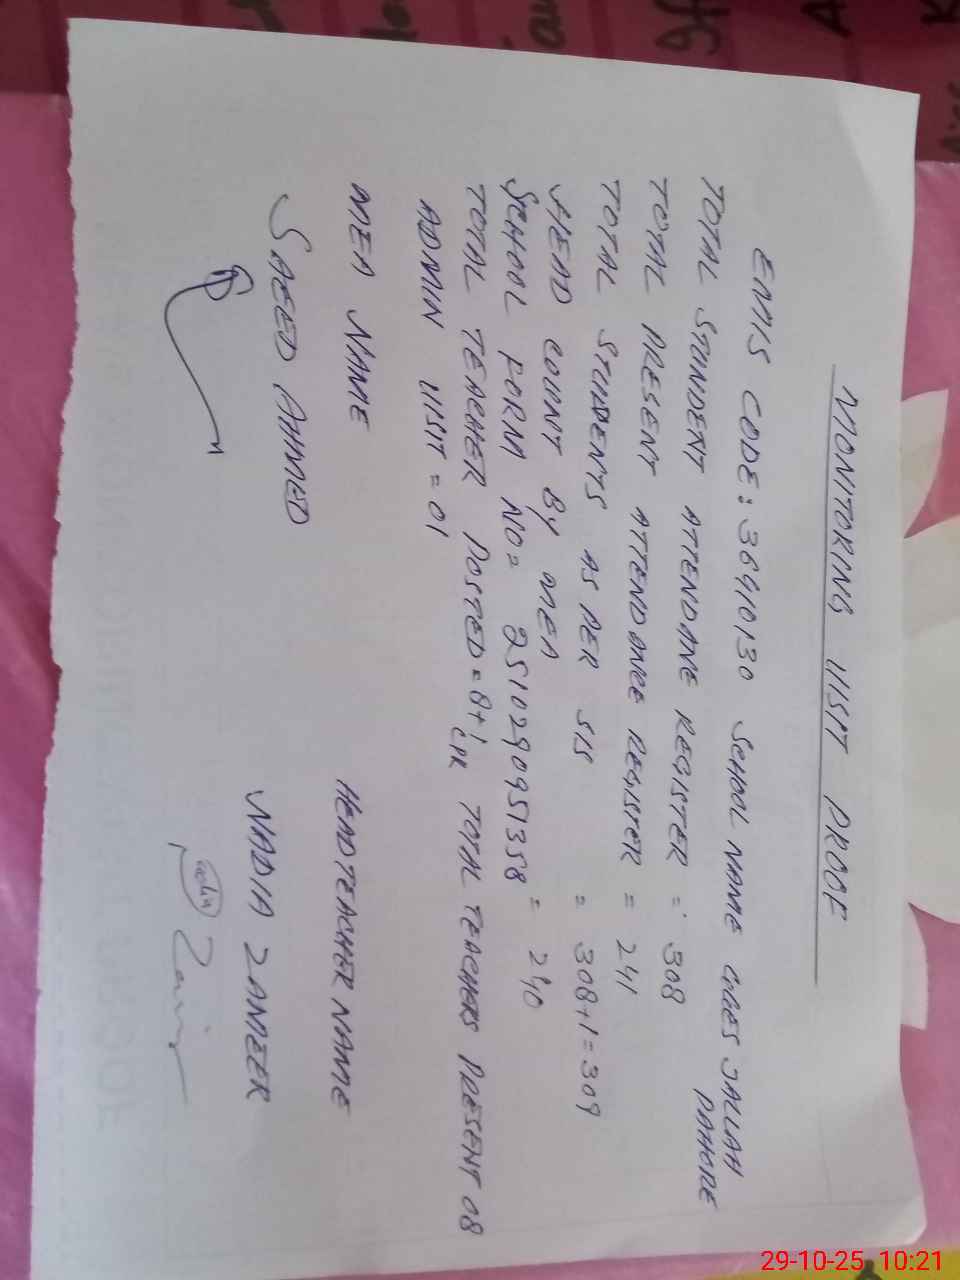 MONITORING VISIT PROOF
EMIS CODE: 36410130 SCHOOL NAME GGES JALLAH PAHORE
TOTAL STUNDENT ATTENDANE REGISTER = 308
TOTAL PRESENT ATTENDANCE REGISTER = 241
TOTAL STUDENTS AS PER SIS = 308+1=309
HEAD COUNT BY MEA = 240
SCHOOL FORM NO= 2510290951358
TOTAL TEACHER POSTED = 8+1 TOTAL TEACHERS PRESENT 08
ADMIN VISIT = 01
MEA NAME HEADTEACHER NAME
SAEED AHMED NADIA ZAMEER
29-10-25 10:21